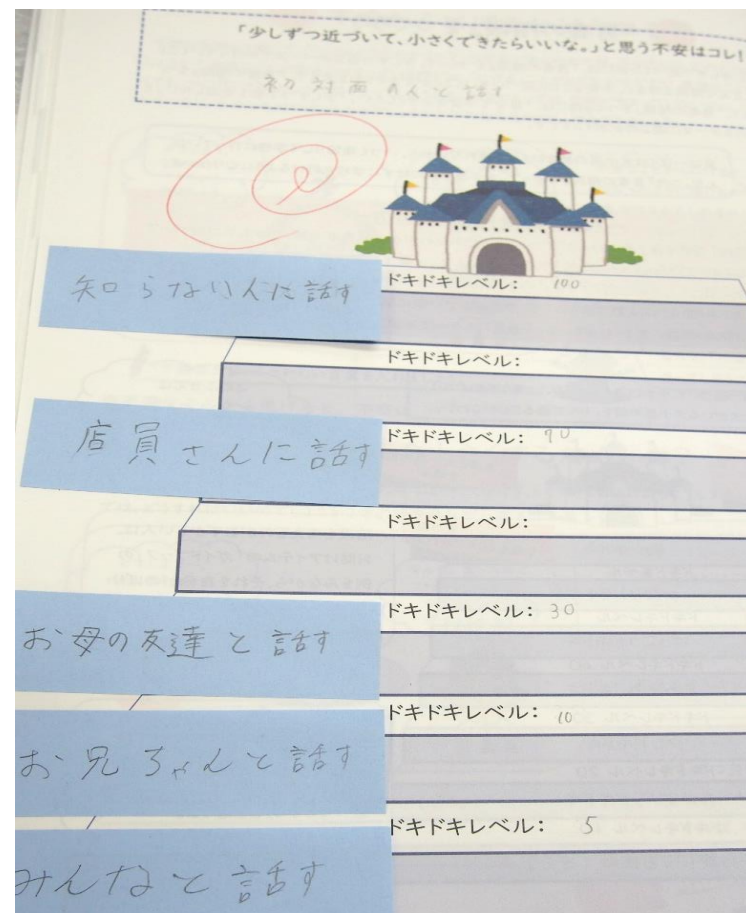 「少しずつ近づいて、小さくできたらいいな。」と思う不安はコレ!
初対面の人と話す
知らない人に話す
ドキドキレベル: 100
ドキドキレベル:
店員さんに話す
ドキドキレベル: 90
ドキドキレベル:
お母の友達と話す
ドキドキレベル: 30
お兄ちゃんと話す
ドキドキレベル: 10
みんなと話す
ドキドキレベル: 5